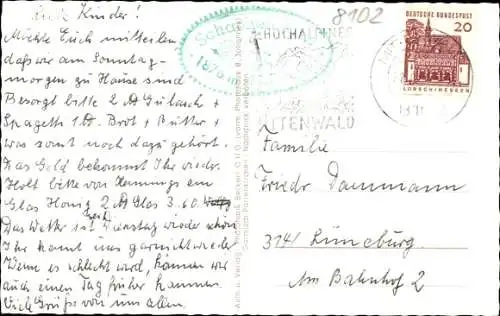 Liebe Kinder!
Möchte Euch mitteilen
daß wir am Sonntag-
morgen zu Hause sind
Besorgt bitte 2 ℔ Gulasch +
Spagetti 1 ℔. Brot + Butter +
was sonst noch dazu gehört.
Das Geld bekommt Ihr wieder.
Holt bitte von Hennings ein
Glas Honig 2 ℔ Glas 3.60.
Das Wetter ist seit Dienstag wieder schön
Ihr kennt uns garnicht wieder
Wenn es schlecht wird, können wir
auch einen Tag früher kommen.
Viele Grüße von uns allen.
8102
1876 m
HOCHALPINES
MITTENWALD
DEUTSCHE BUNDESPOST
20
LORSCH/HESSEN
Familie
Friedr. Dammann
314 Lüneburg.
Am Bahnhof 2